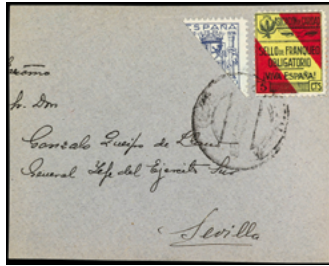 ESPAÑA
SELLO DE FRANQUEO
OBLIGATORIO
¡VIVA ESPAÑA!
5 CTS
Sr. Don
Gonzalo Queipo de Llano
General Jefe del Ejercito Sur
Sevilla